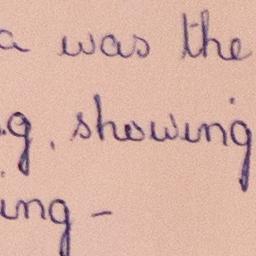 a was the
g. showing
ing -